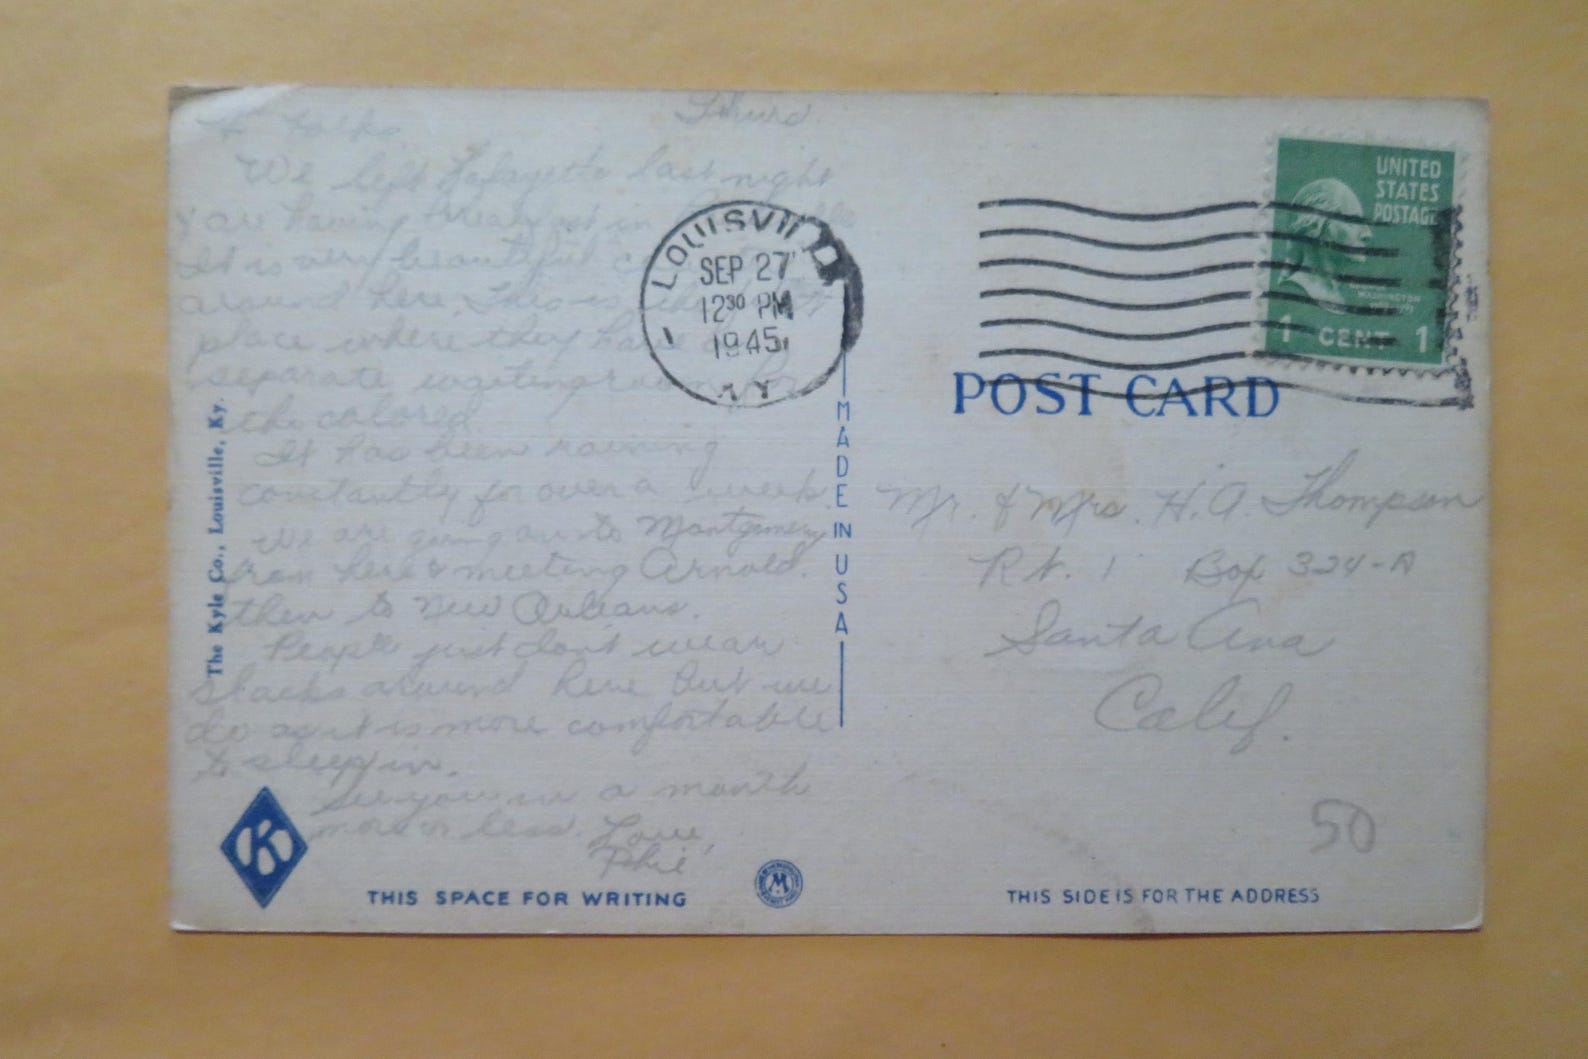 Thurs.
Folks,
We left Lafayette last night
& are having breakfast in
It is very beautiful
around here. This is the first
place where they have
separate waiting room for
the colored.
It has been raining
constantly for over a week.
We are going on to Montgomery
from here & meeting Arnold.
then to New Orleans.
People just don't wear
slacks around here but we
do as it is more comfortable
to sleep in.
See you in a month
more or less. Love,
Phie
The Kyle Co., Louisville, Ky.
K
THIS SPACE FOR WRITING
M
MADE IN USA
LOUISVILLE
SEP 27
12 30 PM
1945
KY
1
UNITED
STATES
POSTAGE
WASHINGTON
1 CENT 1
POST CARD
Mr. & Mrs. H. A. Thompson
Rt. 1 Box 324-A
Santa Ana
Calif.
50
THIS SIDE IS FOR THE ADDRESS